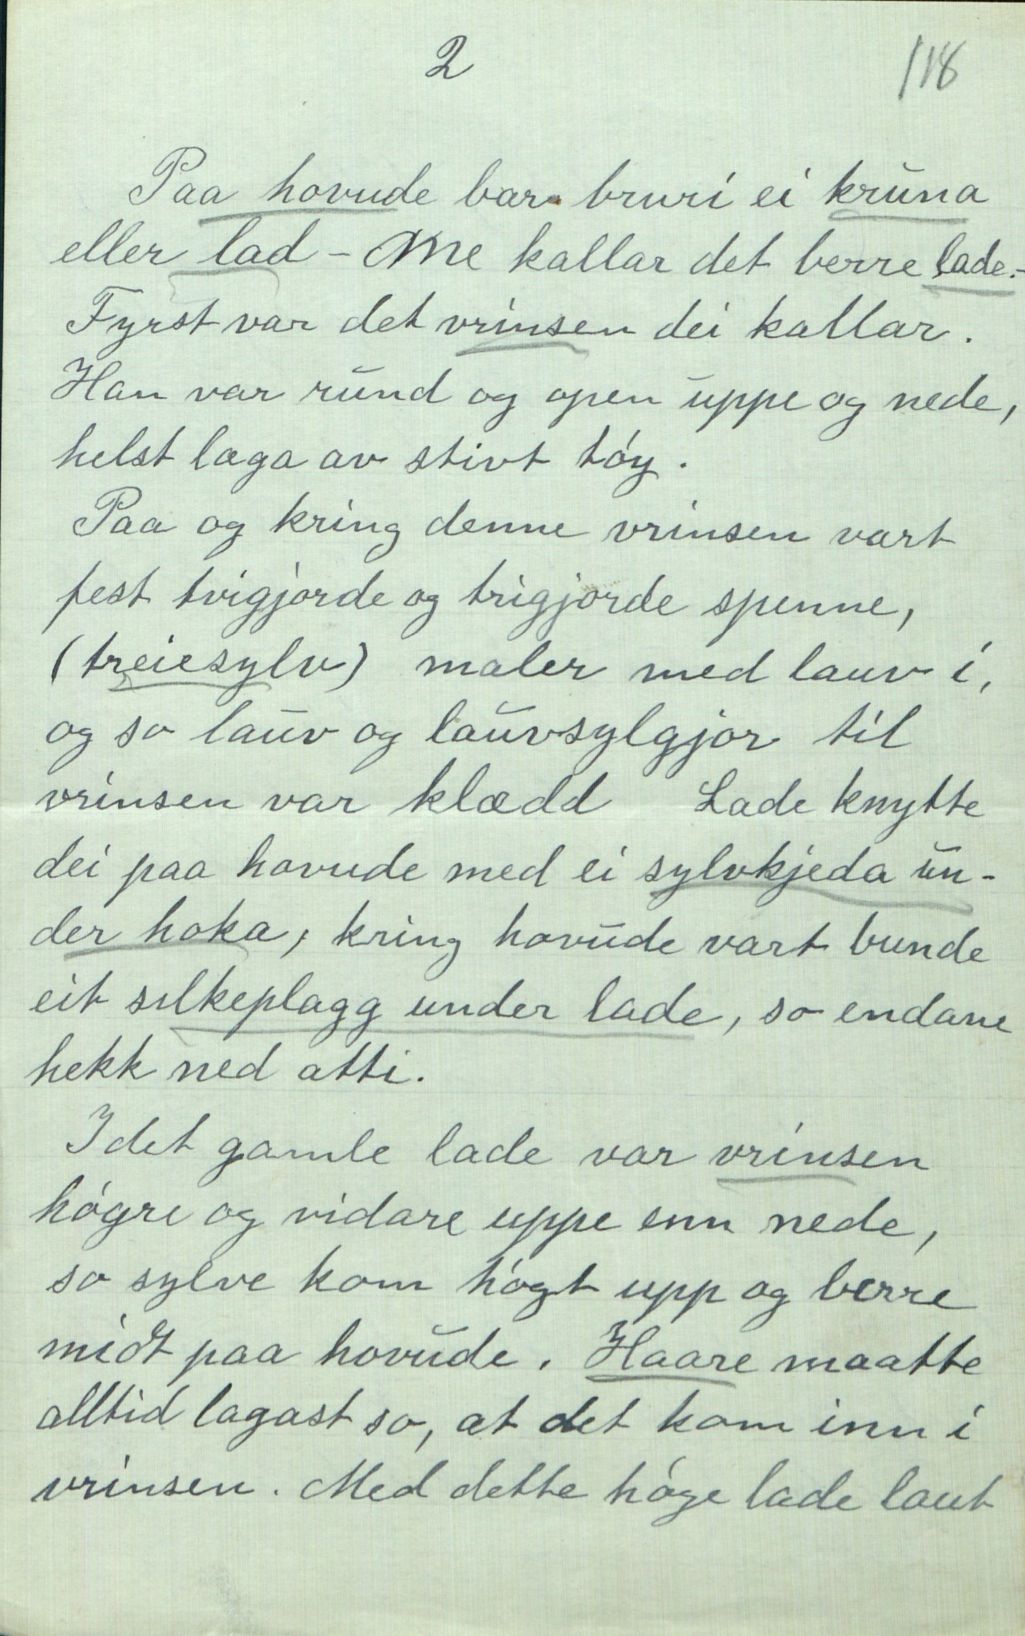 2
118
Paa hovude bar bruri ei kruna
eller lad - Me kallar det berre lade. -
Fyrst var det vrinsen dei kallar.
Han var rund og open uppe og nede,
helst laga av stivt tóy.
Paa og kring denne vrinsen vart
fest tvigjorde og trigjorde spenne,
(treiesylv) maler med lauv i,
og so lauv og lauvsylgjor til
vrinsen var klædd Lade knytte
dei paa hovude med ei sylvkjeda un-
der hoka, kring hovude vart bunde
eit silkeplagg under lade, so endane
hekk ned atti.
I det gamle lade var vrinsen
hógre og vidare uppe enn nede,
so sylve kom hógt upp og berre
midt paa hovude. Haare maatte
alltid lagast so, at det kom inn i
vrinsen. Med dette hóge lade laut